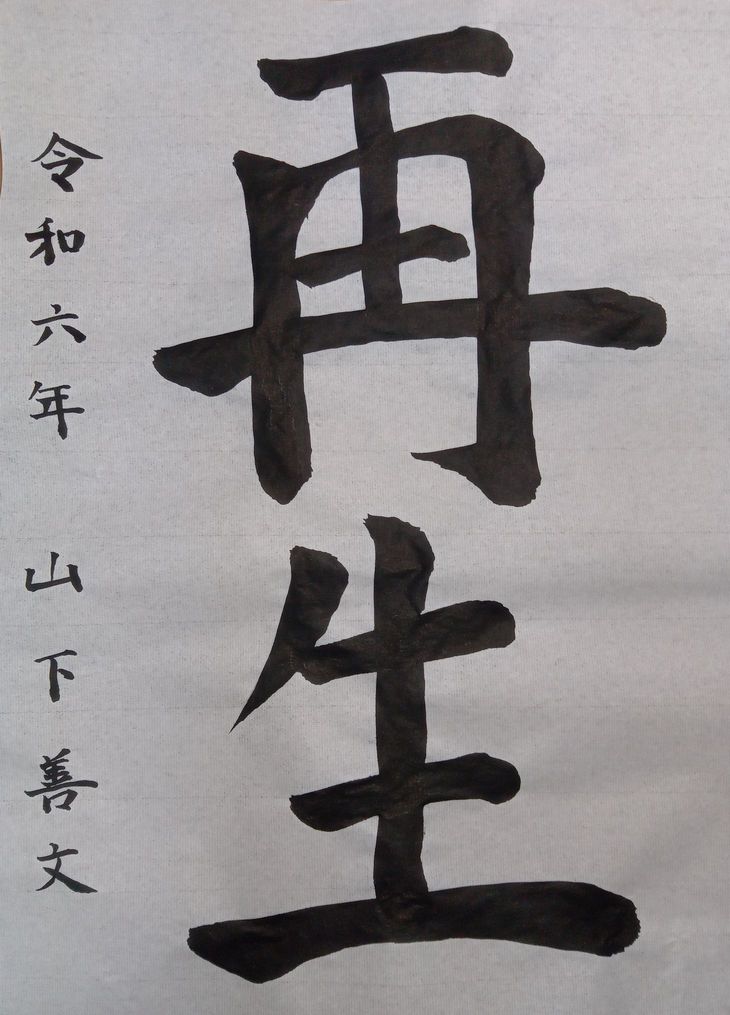 再生
令和六年 山下善文